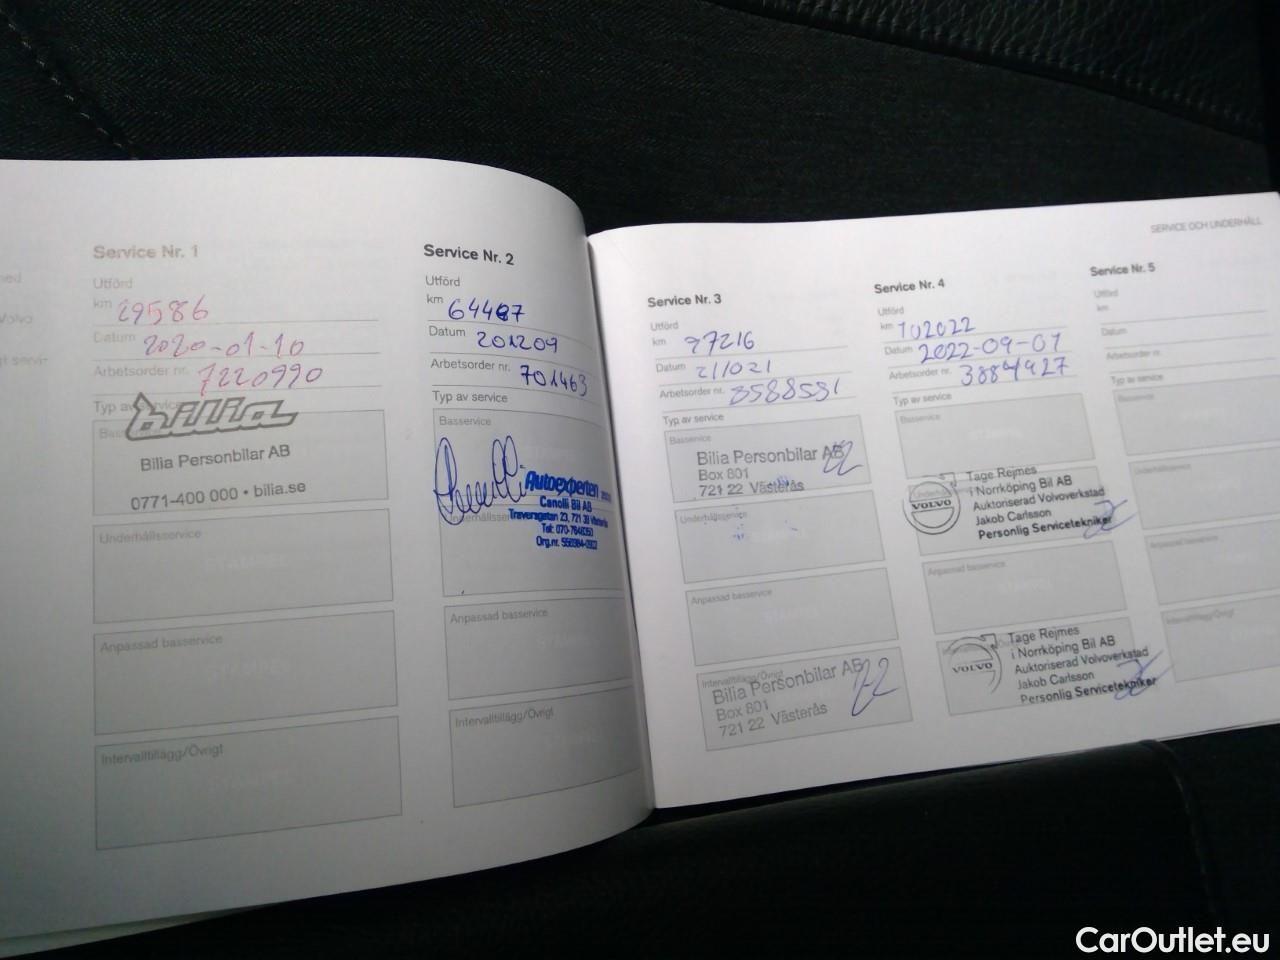 SERVICE OCH UNDERHÅLL
Service Nr. 1
Utförd
km 29586
Datum 2020-01-10
Arbetsorder nr. 7220990
Typ av service
bilia
Bilia Personbilar AB
0771-400 000 • bilia.se
Underhållsservice
Anpassad basservice
Intervalltillägg/Övrigt
Service Nr. 2
Utförd
km 64487
Datum 201209
Arbetsorder nr. 701463
Typ av service
Basservice
Autoexperten
Canolli Bil AB
Traversgatan 23, 721 38 Västerås
Underhållsservice
Anpassad basservice
Intervalltillägg/Övrigt
Service Nr. 3
Utförd
km 97216
Datum 211021
Arbetsorder nr. 3588531
Typ av service
Basservice
Bilia Personbilar AB
Box 801
721 22 Västerås
Underhållsservice
Anpassad basservice
Intervalltillägg/Övrigt
Bilia Personbilar AB
Box 801
721 22 Västerås
Service Nr. 4
Utförd
km 102022
Datum 2022-09-01
Arbetsorder nr.
Typ av service
Basservice
VOLVO
Tage Rejmes
i Norrköping Bil AB
Auktoriserad Volvoverkstad
Jakob Carlsson
Personlig Servicetekniker
Anpassad basservice
VOLVO
Tage Rejmes
i Norrköping Bil AB
Auktoriserad Volvoverkstad
Jakob Carlsson
Personlig Servicetekniker
Service Nr. 5
Utförd
km
Datum
Arbetsorder nr.
Typ av service
Basservice
Underhållsservice
Anpassad basservice
Intervalltillägg/Övrigt
CarOutlet.eu